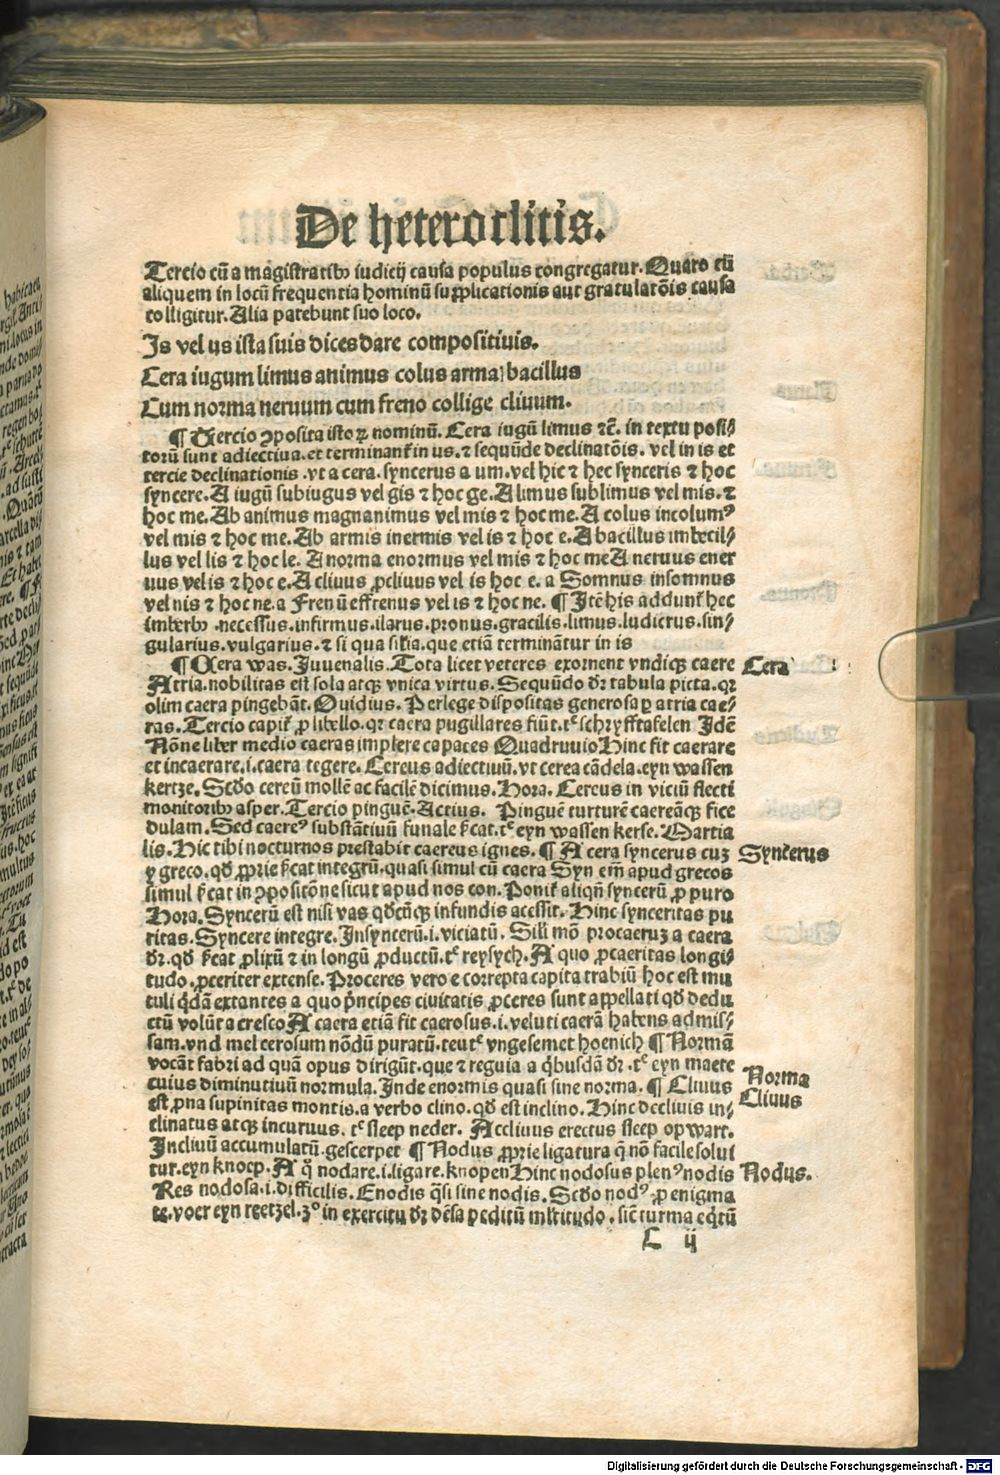 De heteroclitis.
Tercio cū a magistratibꝰ iudicij causa populus congregatur. Quarto cū
aliquem in locū frequentia hominū supplicationis aut gratulatōis causa
colligitur. Alia patebunt suo loco.
Is vel us ista suis dices dare compositiuis.
Cera iugum limus animus colus arma bacillus
Cum norma neruum cum freno collige cliuum.
¶ Tercio ꝯposita istoꝝ nominū. Cera iugū limus ⁊c̄. in textu posi⸗
torū sunt adiectiua. et terminant̄ in us. ⁊ sequūt̄ declinatōis. vel in is et
tercie declinationis. vt a cera. syncerus a um. vel hic ⁊ hec synceris ⁊ hoc
syncere. A iugū subiugus vel gis ⁊ hoc ge. A limus sublimus vel mis. ⁊
hoc me. Ab animus magnanimus vel mis ⁊ hoc me. A colus incolumꝰ
vel mis ⁊ hoc me. Ab armis inermis vel is ⁊ hoc e. A bacillus imbecil⸗
lus vel lis ⁊ hoc le. A norma enormus vel mis ⁊ hoc me A neruus ener
uus vel is ⁊ hoc e. A cliuus ꝓcliuus vel is hoc e. a Somnus insomnus
vel nis ⁊ hoc ne. a Frenū effrenus vel is ⁊ hoc ne. ¶ Itē his addunt̄ hec
imberbꝰ .necessus. infirmus. ilarus. pronus. gracilis. limus. ludicrus. sin⸗
gularius. vulgarius. ⁊ si qua sil̄ia. que etiā terminātur in is
¶ Cera was. Iuuenalis. Tota licet veteres exornent vndiqꝫ caere
Atria. nobilitas est sola atqꝫ vnica virtus. Sequūdo dr̄ tabula picta. qꝛ
olim caera pingebāt. Ouidius. Perlege dispositas generosa ꝑ atria cae⸗
ras. Tercio capit̄ ꝓ libello. qꝛ caera pugillares fiūt. tē schryfftafelen Idē
Nōne liber medio caeras implere capaces Quadruuio Hinc fit caerare
et incaerare .i. caera tegere. Cereus adiectiuū. vt cerea cādela. eyn wassen
kertze. Scđo cereū mollē ac facilē dicimus. Hora. Cereus in viciū flecti
monitoribꝰ asper. Tercio pinguē. Actius. Pinguē turturē caereāqꝫ fice
dulam. Sed caereꝰ substātiuū funale s̄cat. tē eyn wassen kerse. Martia
lis. Hic tibi nocturnos prestabit caereus ignes. ¶ A cera syncerus cuꝫ
y greco. qđ ꝓprie s̄cat integrū. quasi simul cū caera Syn em̄ apud grecos
simul s̄cat in ꝯpositōne sicut apud nos con. Ponit̄ aliqn̄ syncerū ꝓ puro
Hora. Syncerū est nisi vas qđcūqꝫ infundis acessit. Hinc synceritas pu
ritas. Syncere integre. Insyncerū .i. viciatū. Sili mō procaeruꝫ a caera
dr̄. qđ s̄cat ꝓlixū ⁊ in longū ꝓductū. tē reysych. A quo ꝓcaeritas longi⸗
tudo. ꝓceriter extense. Proceres vero e correpta capita trabiū hoc est mu
tuli qđā extantes a quo p̄ncipes ciuitatis ꝓceres sunt appellati qđ dedu
ctū volūt a cresco A caera etiā fit caerosus .i. veluti caerā habens admis⸗
sam. vnd mel cerosum nōdū puratū. teutē yngesemet hoenich ¶ Normā
vocāt fabri ad quā opus dirigūt. que ⁊ regula a qͥbusdā dr̄. tē eyn maete
cuius diminutiuū normula. Inde enormis quasi sine norma. ¶ Cliuus
est ꝓna supinitas montis. a verbo clino. qđ est inclino. Hinc decliuis in⸗
clinatus atqꝫ incuruus. tē sleep neder. Accliuus erectus sleep opwart.
Incliuū accumulatū. gescerpet ¶ Nodus ꝓprie ligatura q̄ nō facile solui
tur. eyn knoep. A q̊ nodare .i. ligare. knopen Hinc nodosus plenꝰ nodis
Res nodosa .i. difficilis. Enodis q̄si sine nodis. Scđo nodꝰ ꝓ enigma
te. voer eyn reetzel. 3º in exercitu dr̄ dēsa peditū ml̄titudo. sic̄ turma eqͥtū
C ij
Cera
Syncerus
Norma
Cliuus
Nodus.
Digitalisierung gefördert durch die Deutsche Forschungsgemeinschaft - DFG